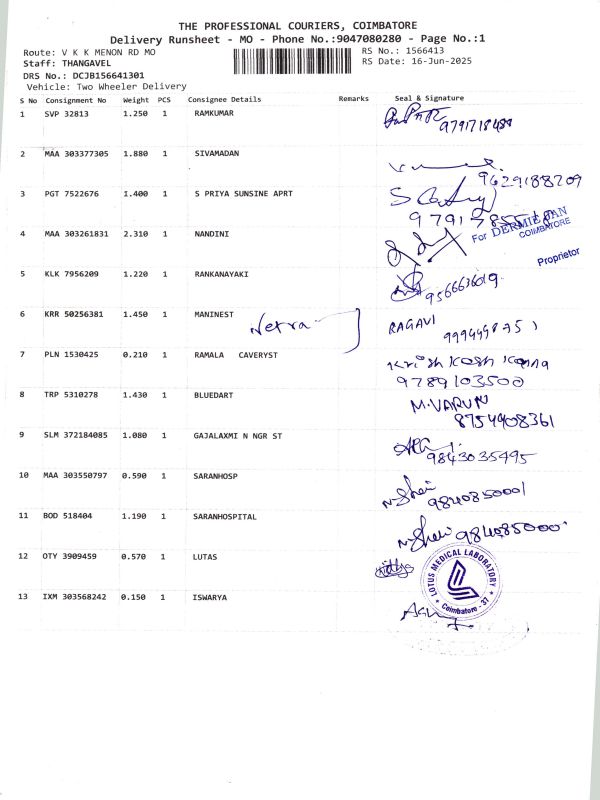 THE PROFESSIONAL COURIERS, COIMBATORE
Delivery Runsheet - MO - Phone No.:9047080280 - Page No.:1
Route: V K K MENON RD MO RS No.: 1566413
Staff: THANGAVEL RS Date: 16-Jun-2025
DRS No.: DCJB156641301
Vehicle: Two Wheeler Delivery
S No Consignment No Weight PCS Consignee Details Remarks Seal & Signature
1 SVP 32813 1.250 1 RAMKUMAR
2 MAA 303377305 1.880 1 SIVAMADAN
9629188209
3 PGT 7522676 1.400 1 S PRIYA SUNSINE APRT
4 MAA 303261831 2.310 1 NANDINI
For DERMIE TAN
COIMBATORE
Proprietor
5 KLK 7956209 1.220 1 RANKANAYAKI
9566636019
6 KRR 50256381 1.450 1 MANINEST
Netra RAGAVI
7 PLN 1530425 0.210 1 RAMALA CAVERYST
9789103500
8 TRP 5310278 1.430 1 BLUEDART
M.VARUN
8754408361
9 SLM 372184085 1.080 1 GAJALAXMI N NGR ST
9843035495
10 MAA 303550797 0.590 1 SARANHOSP
9840850001
11 BOD 518404 1.190 1 SARANHOSPITAL
12 OTY 3909459 0.570 1 LUTAS
LOTUS MEDICAL LABORATORY
Coimbatore - 37
13 IXM 303568242 0.150 1 ISWARYA